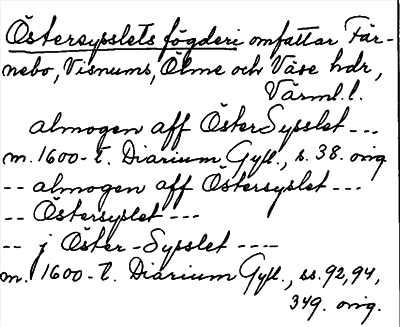 Östersysslets fögderi omfattar Fär-
nebo, Visnums, Ölme och Väse hdr,
Värml. l.
almogen aff Öster Sysslet ---
m. 1600-t. Diarium Gyll., s. 38. orig
-- almogen aff Östersyslet ---
-- Östersyslet ---
-- j Öster-Sysslet ----
m. 1600-t. Diarium Gyll., ss. 92, 94,
349. orig.